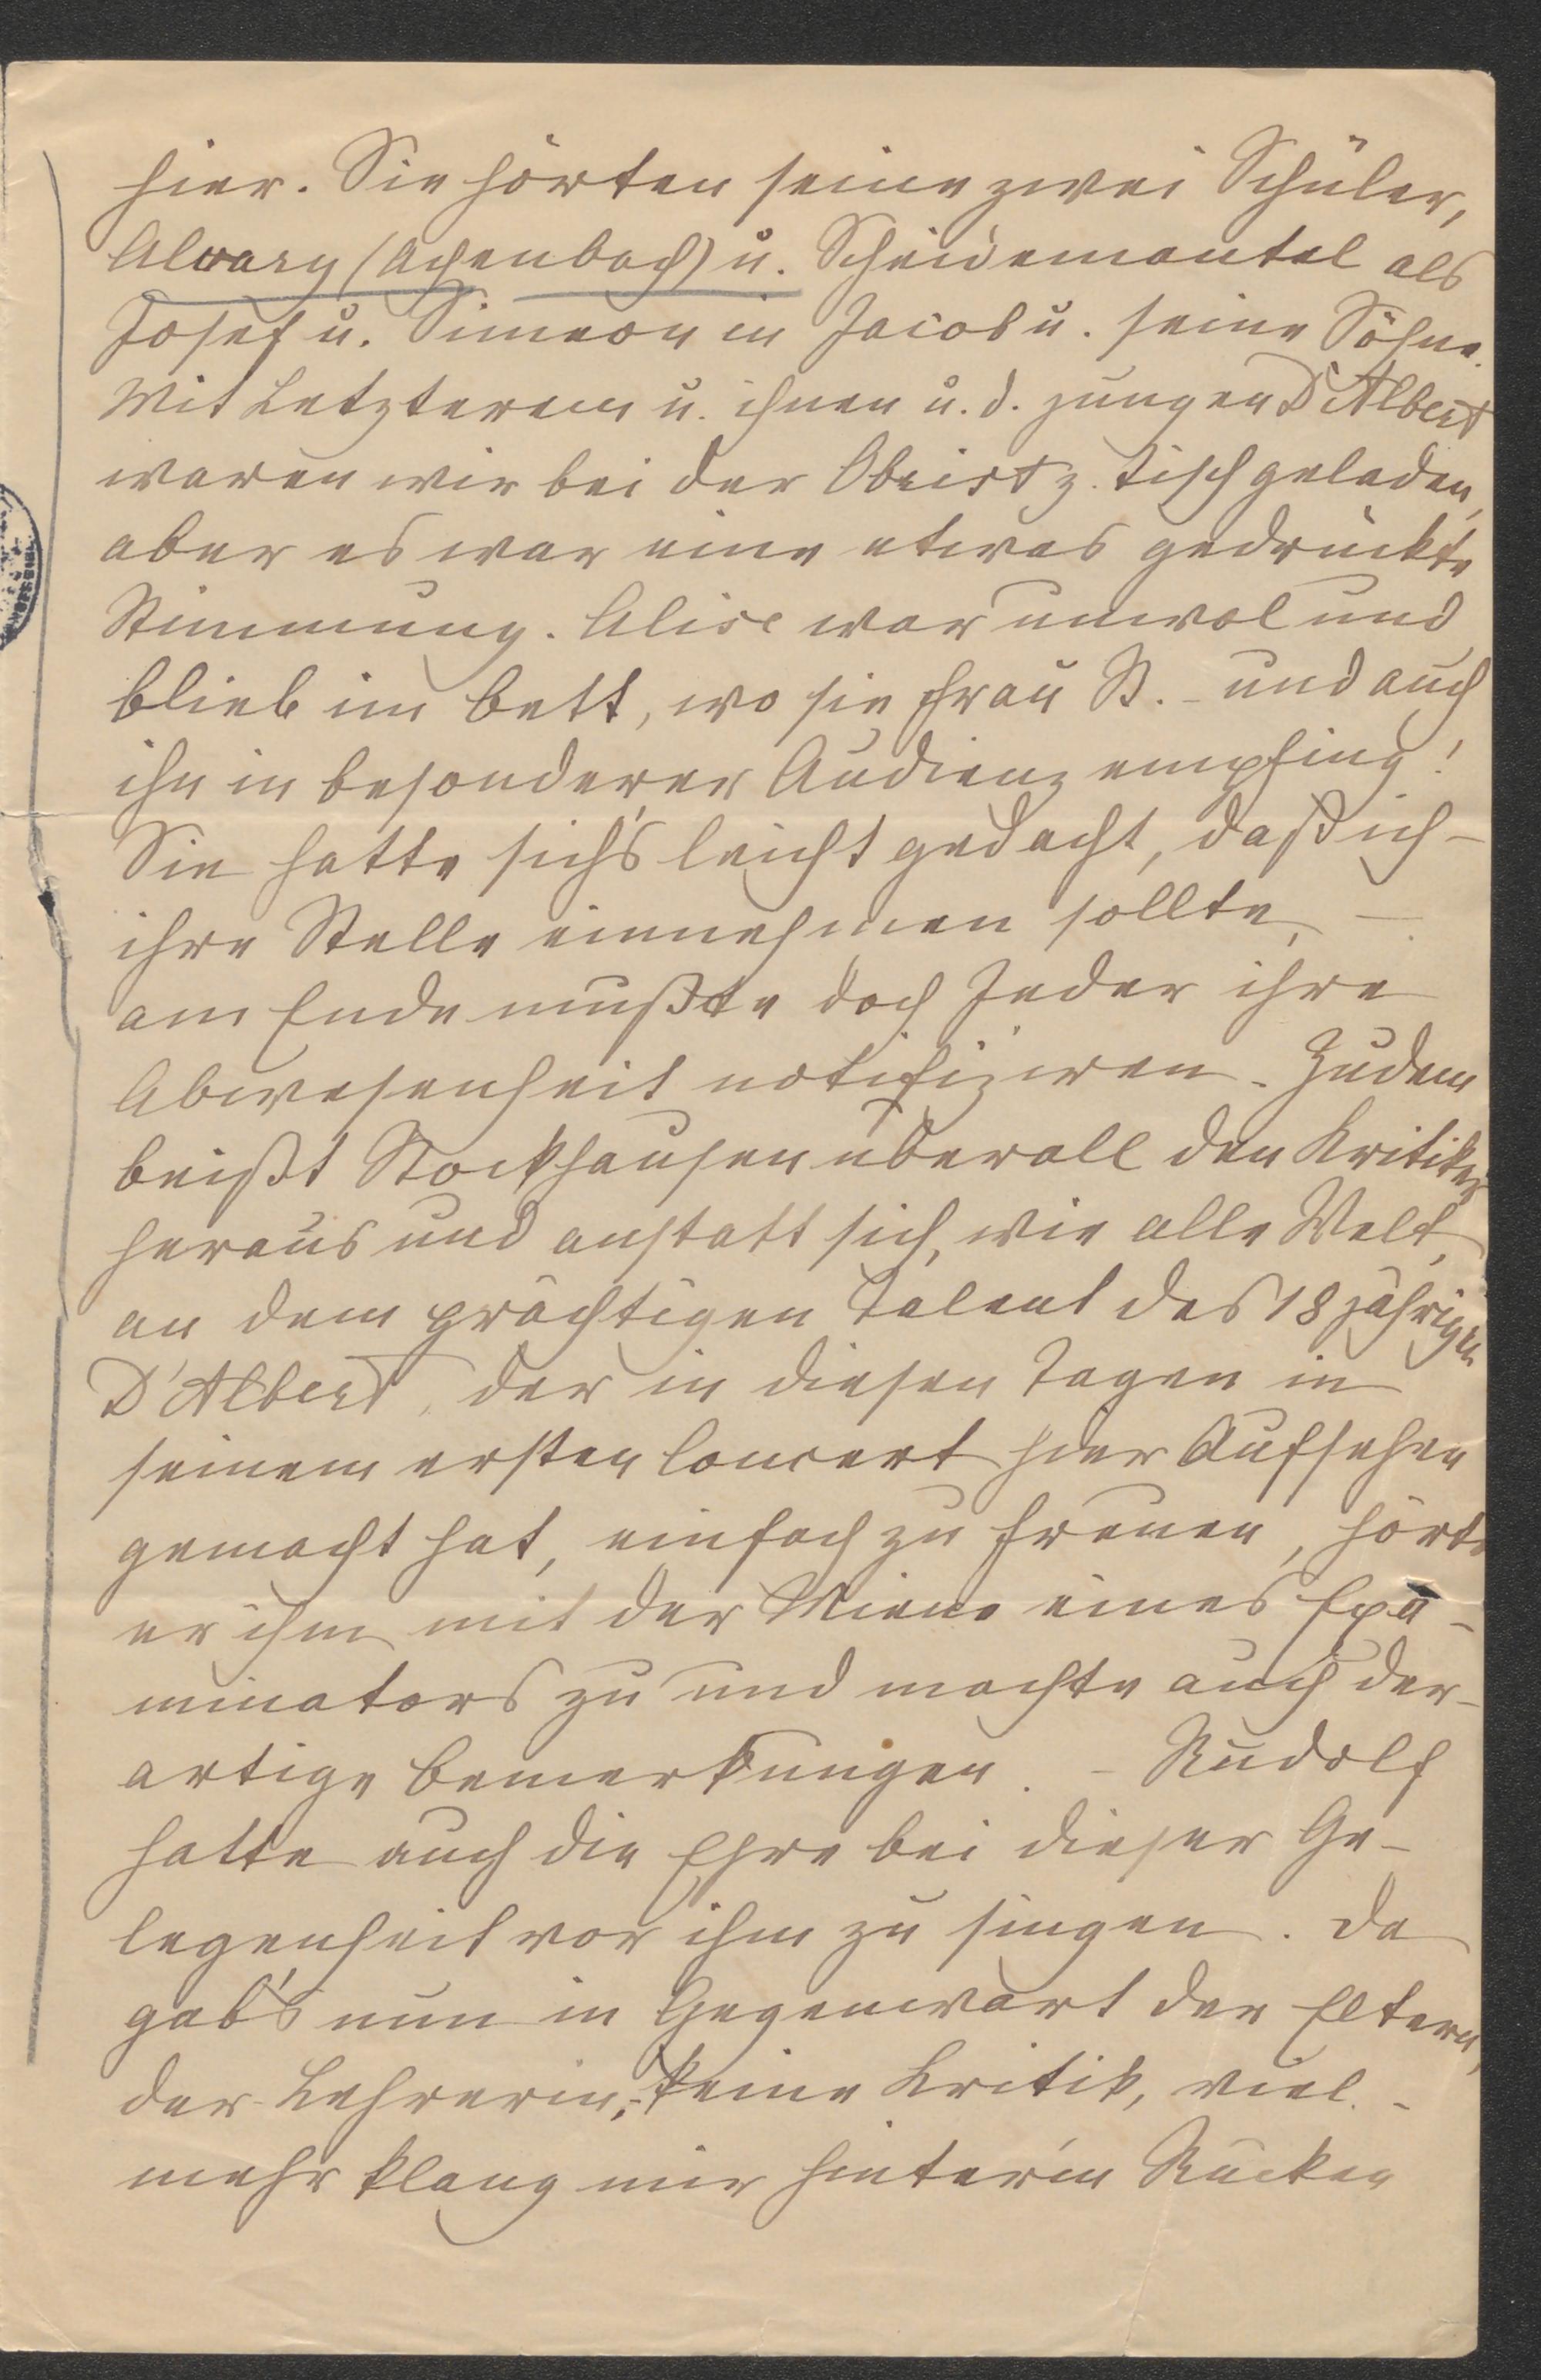 hier. Sie hörten seine zwei Schüler,
Alvary (Achenbach) u. Scheidemantel als
Josef u. Simeon in Jacob u. seine Söhne.
Mit Letzterem u. ihnen u. d. jungen D'Albert
waren wir bei der Obrist z. Tisch geladen,
aber es war eine etwas gedrückte
Stimmung. Alise war unwol und
blieb im Bett, wo sie Frau St. - und auch
ihn in besonderer Audienz empfing!
Sie hatte sich's leicht gedacht, daß ich -
ihre Stelle einnehmen sollte, -
am Ende mußte doch Jeder ihre
Abwesenheit notifiziren. Zudem
beißt Stockhausen überall den Kritiker
heraus und anstatt sich, wie alle Welt,
an dem prächtigen Talent des 18 jährigen
D'Albert, der in diesen Tagen in
seinem ersten Concert hier Aufsehen
gemacht hat, einfach zu freuen, hörte
er ihm mit der Miene eines Exa-
minators zu und machte auch der-
artige Bemerkungen. - Rudolf
hatte auch die Ehre bei dieser Ge-
legenheit vor ihm zu singen. Da
gab's nun in Gegenwart der Eltern,
der Lehrerin, - keine Kritik, viel-
mehr klang mir hinter'm Rücken